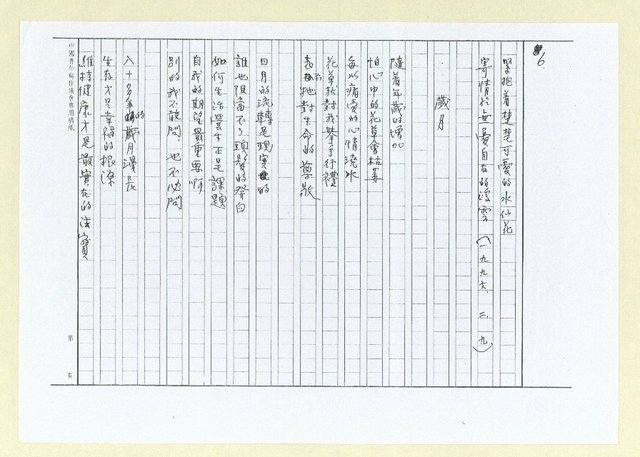 6
緊抱着楚楚可愛的水仙花
寄情於無憂自在的浮雲（一九九六、三、九）
歲月
隨着年歲的增加
怕心中的花草會枯萎
每以痛愛的心情澆水
花草就對我舉手行禮
表示他對生命的尊嚴
日月的流轉是現實的
誰也阻當不了頭髮的發白
如何生活嘗才正是課題
自我的期望最重要啊
別的我不敢問，也不必問
八十多年的歲月漫長
生存才是幸福的根源
維持健康才是最實在的法寶
第 頁